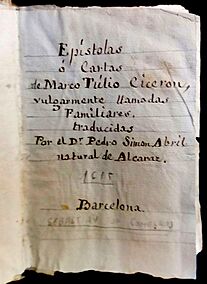 Epístolas
ó Cartas
de Marco Túlio Ciceron,
vulgarmente llamadas
Familiares.
traducidas
Por el Dr. Pedro Simon Abril
natural de Alcaraz.
1615
Barcelona.